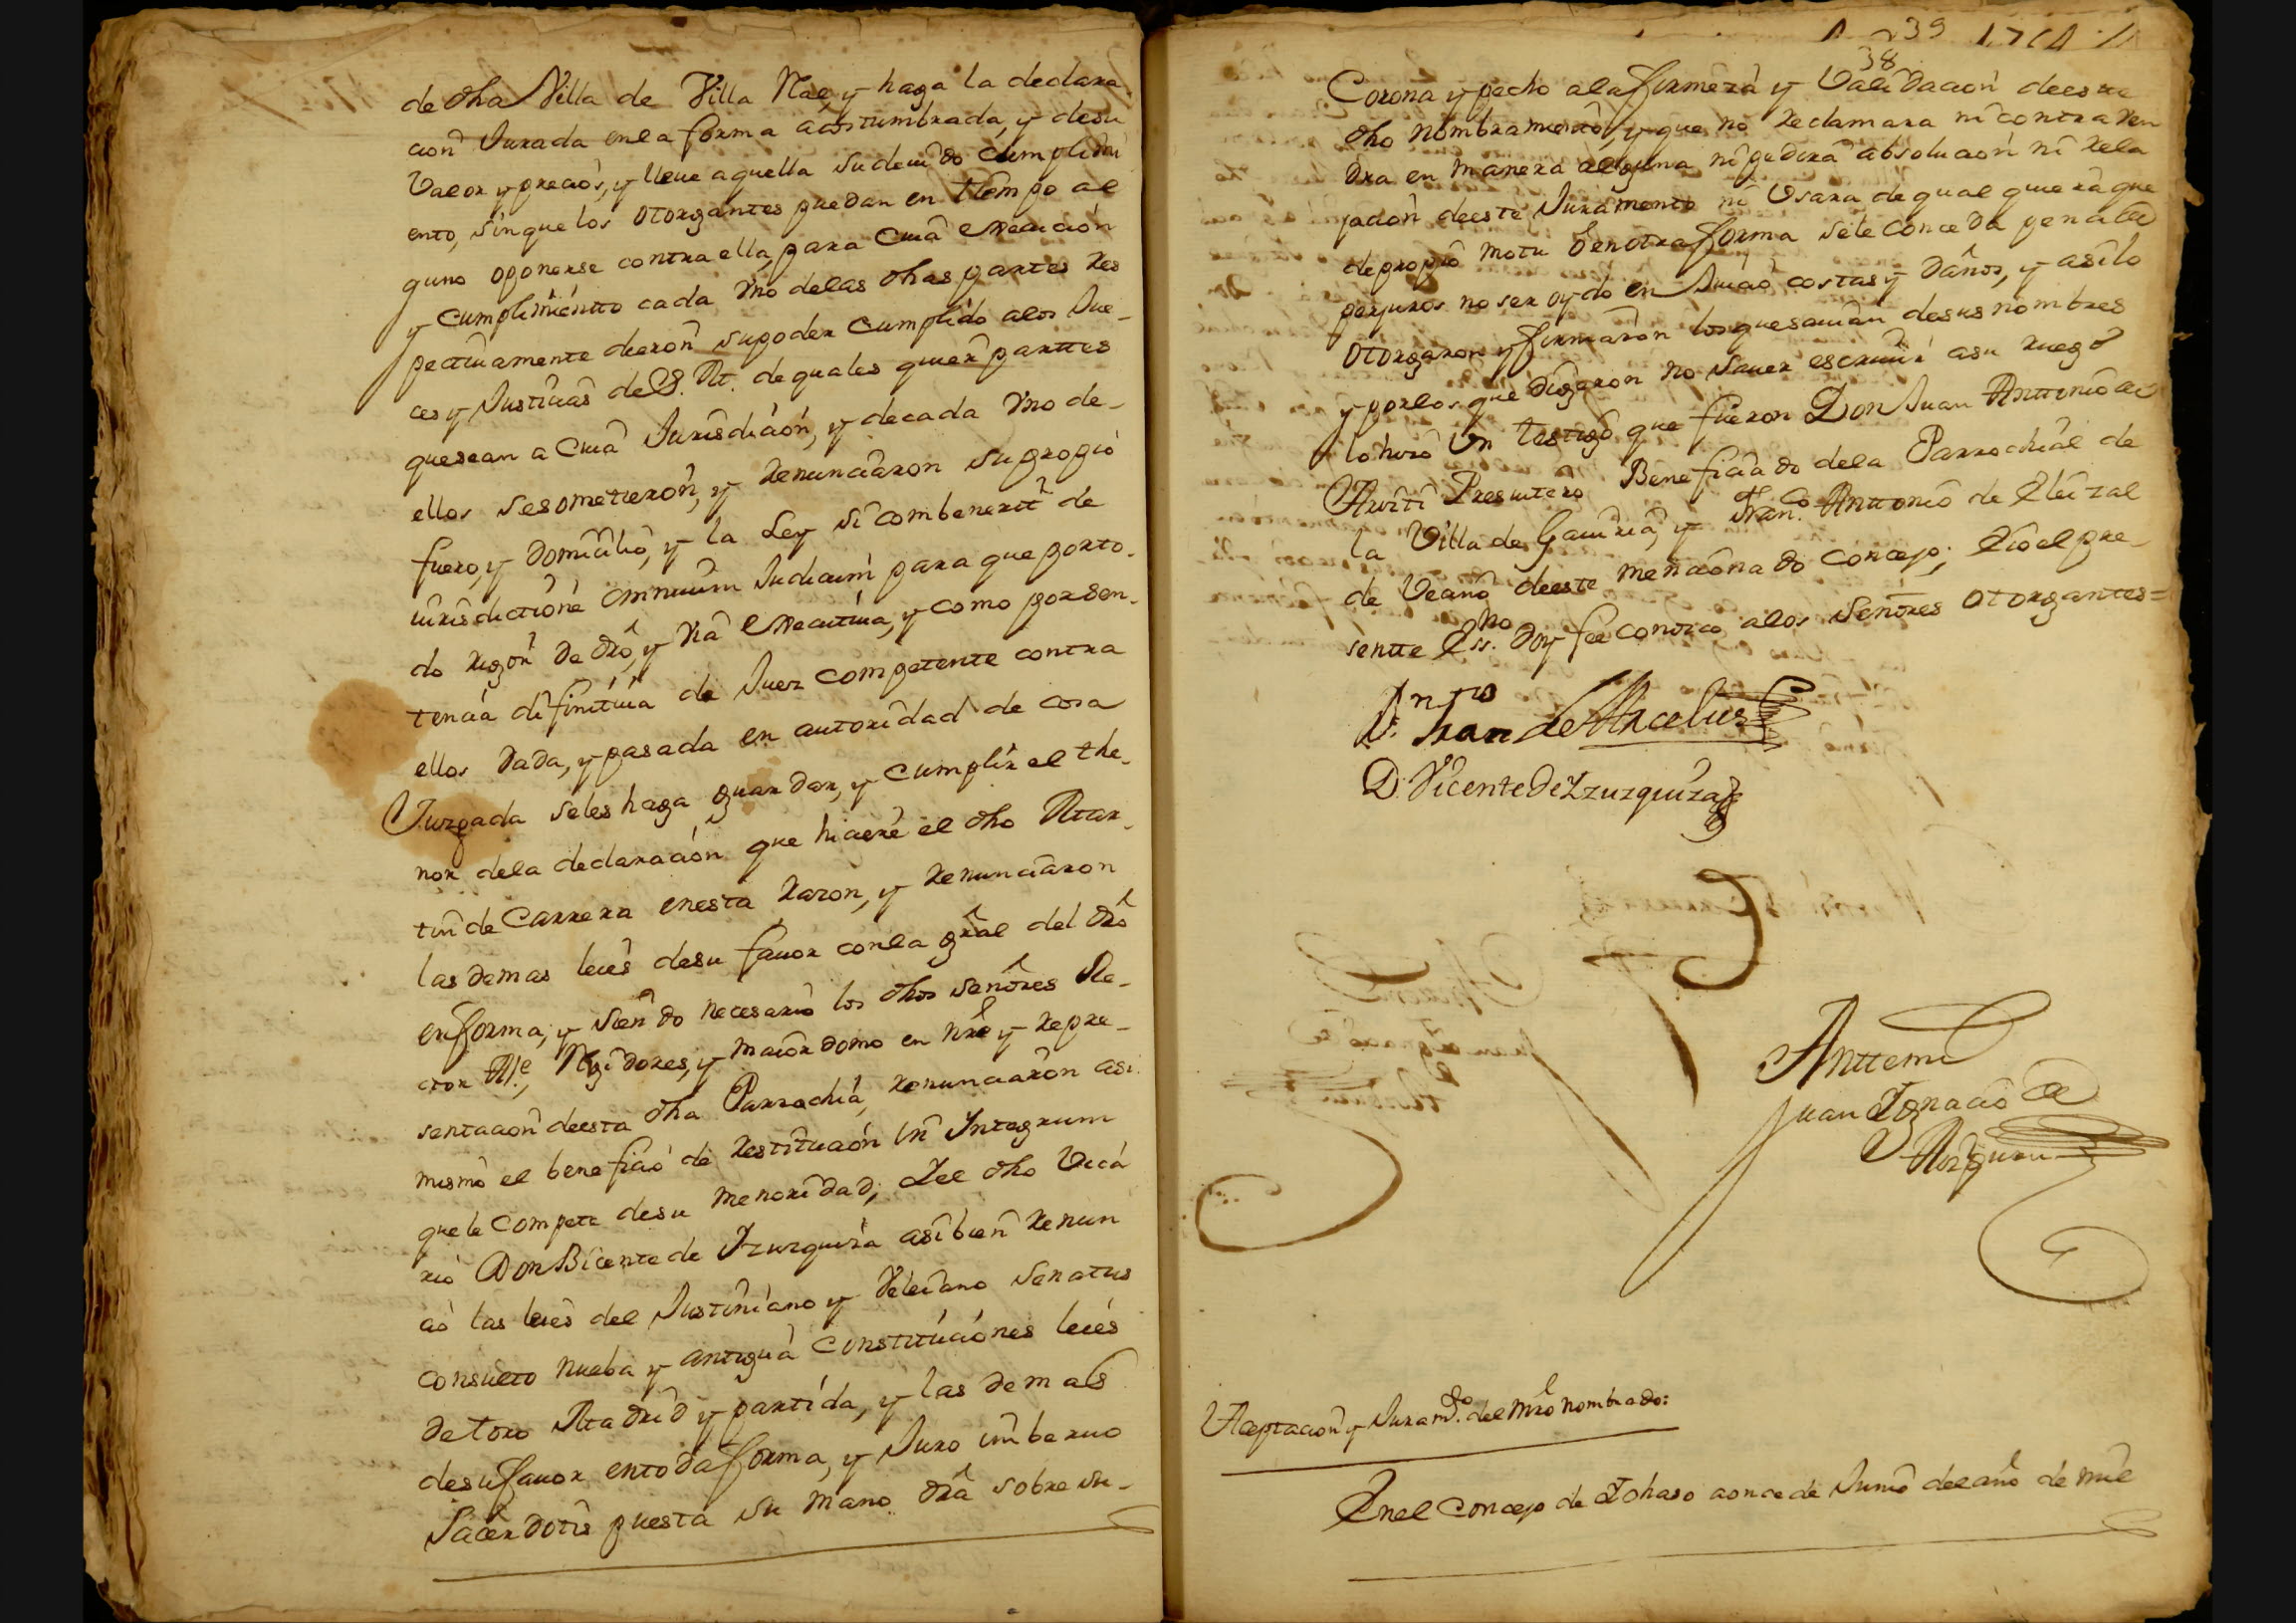 de dha Villa de Villa Rae, y haga la declara-
cion Jurada en la forma acostumbrada, y de su
Valor y precios, y lleue aquella su deuido Cumplimi
ento, sin que los otorgantes puedan en tiempo al
guno oponerse contra ella, para Cuia execucion
y Cumplimientto cada Vno de las dhas partes Res
pectiuamente dieron su poder Cumplido a los Jue-
ces y Justicias de S. M. de quales quier parttes
que sean a Cuia Jurisdicion, y de cada Vno de-
ellos se sometieron, y Renunciaron su propio
fuero, y Domicilio, y la Ley si combenerit de
iurisdictione omnium Judicum para que por to-
do rigor de dro, y Via executiua, y como por sen-
tencia difinitiua de Juez competente contra
ellos dada, y pasada en autoridad de cosa
Juzgada se les haga guardar, y Cumplir el the-
nor de la declaracion que hiciere el dho Mar-
tin de Carrera en esta Razon, y Renunciaron
las demas leies de su fauor con la gral del dro
en forma, y siendo necesario los dhos Señores Re-
ctor Alle, Regidores, y maiordomo en nre y Repre-
sentacion de esta dha Parrochia, renunciaron asi
mismo el beneficio de Restitucion In Integrum
que le compete de su menoridad, Y el dho Vica
rio Don Bicente de Yzuzquiza asi bien Renun
cio las leies del Justiniano y Veleiano Senatus
consulto nueba y antigua Constituciones leies
de toro Madrid y partida, y las demas
de su fauor en toda forma, y Juro im beruo
Sacerdotis puesta su mano dra sobre su-
239 1764
38
Corona y pecho a la firmeza y Validacion de este
dho Nombramiento, y que no Reclamara ni contra Ven
dra en manera alguna ni pedira absolucion ni Rela
jacion de este Juramento ni Vsara de qual quiera que
de propio motu o en otra forma se le conceda pena de
perjuros no ser oydo en Juicio costas y daños, y asi lo
otorgaron y firmaron los que sauian de sus nombres
y por los que dixeron no sauer escriuir a su ruego
lo hizo Un testigo que fueron Don Juan Anttonio de
Aroiti Presuitero Beneficiado de la Parrochial de
la Villa de Gauiria, y Fran.co Anttonio de Eleizal
de Vecino de este mencionado Concejo; E yo el pre-
sentte Ess.no doy fee conozco a los Señores otorgantes=
Dn. Juan de Arcelus
D. Vicente de Yzuzquiza
Anttemi
Juan Ignacio de
Aceptacion y Juram.to del Mro nombrado:
En el Concejo de Ychaso a once de Junio del año de mil